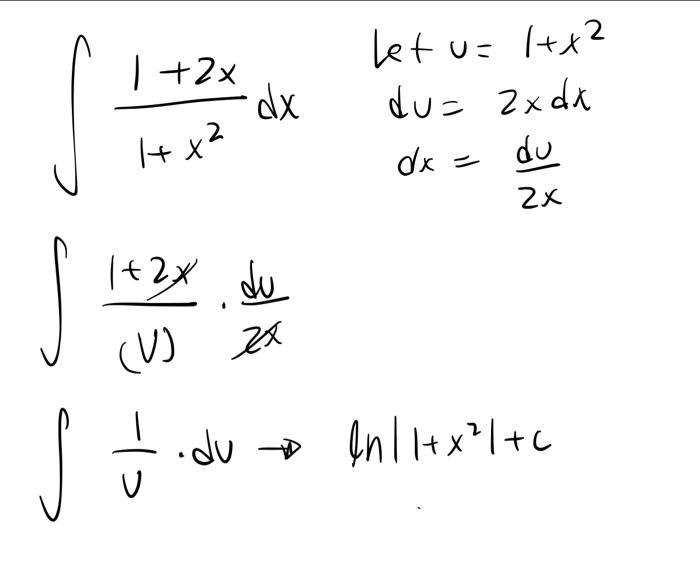 ∫ (1+2x)/(1+x²) dx
Let u = 1+x²
du = 2x dx
dx = du/2x
∫ (1+2x)/(u) · du/2x
∫ 1/u · du → ln|1+x²|+c